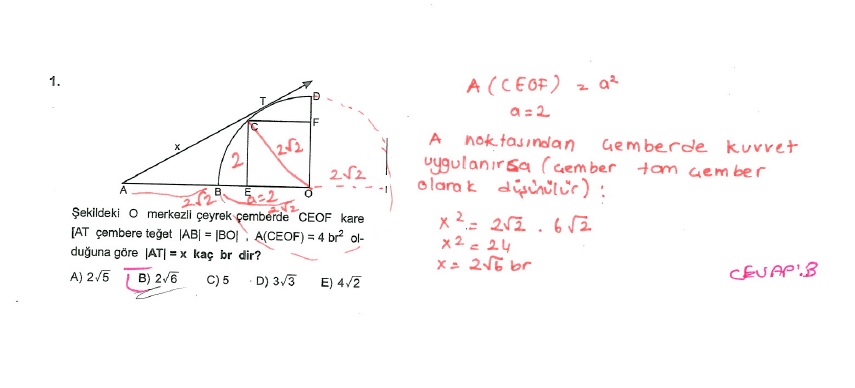 1.
T
D
C
F
x
2
2√2
2√2
A
B
E
O
2√2
a=2
2√2
Şekildeki O merkezli çeyrek çemberde CEOF kare
[AT çembere teğet |AB| = |BO| , A(CEOF) = 4 br² ol-
duğuna göre |AT| = x kaç br dir?
A) 2√5 B) 2√6 C) 5 D) 3√3 E) 4√2
A (CEOF) = a²
a=2
A noktasından çemberde kuvvet
uygulanırsa (çember tam çember
olarak düşünülür) :
x² = 2√2 . 6√2
x² = 24
x = 2√6 br
CEVAP:B